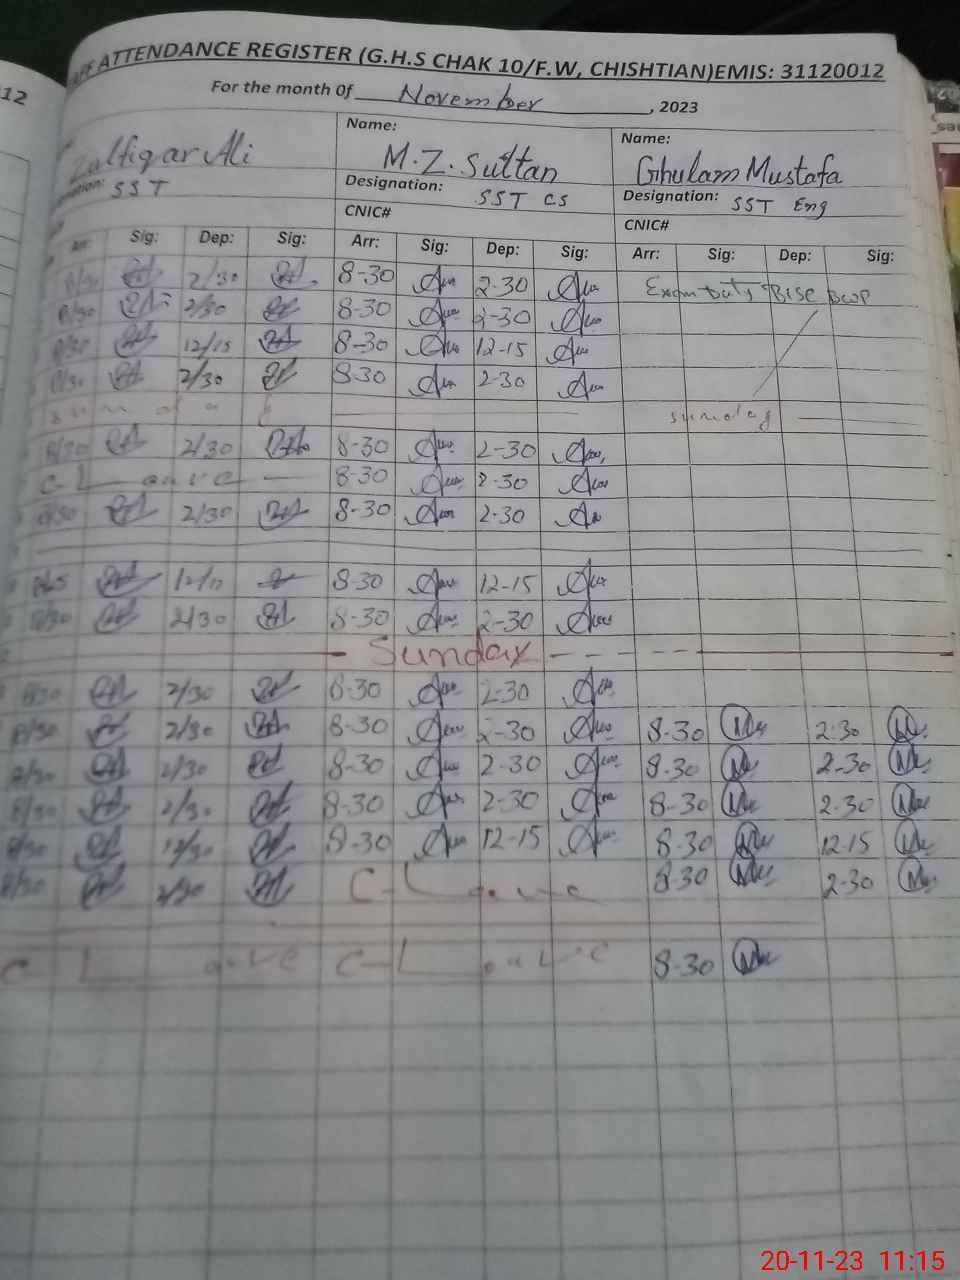 12
AFF ATTENDANCE REGISTER (G.H.S CHAK 10/F.W, CHISHTIAN)EMIS: 31120012
For the month 0f November, 2023
Zulfiqar Ali Name: M.Z. Sultan Name: Ghulam Mustafa
SST Designation: SST CS Designation: SST Eng
CNIC# CNIC#
Arr: Sig: Dep: Sig: Arr: Sig: Dep: Sig: Arr: Sig: Dep: Sig:
8/30 2/30 8-30 2-30 Exam Duty BISE BWP
8/30 2/30 8-30 2-30
8/30 12/15 8-30 12-15
8/30 2/30 8-30 2-30
8/30 2/30 8-30 2-30
C-Leave 8-30 2-30
8/30 2/30 8-30 2-30
8-30 12-15
8/30 2/30 8-30 2-30
Sunday
8/30 2/30 8-30 2-30
8/30 2/30 8-30 2-30 8-30 2-30
2/30 8-30 2-30 8-30 2-30
8/30 2/30 8-30 2-30 8-30 2-30
8/30 8-30 12-15 8-30 12-15
8/30 2/30 C-Leave 8-30 2-30
C Leave C-Leave 8-30
20-11-23 11:15